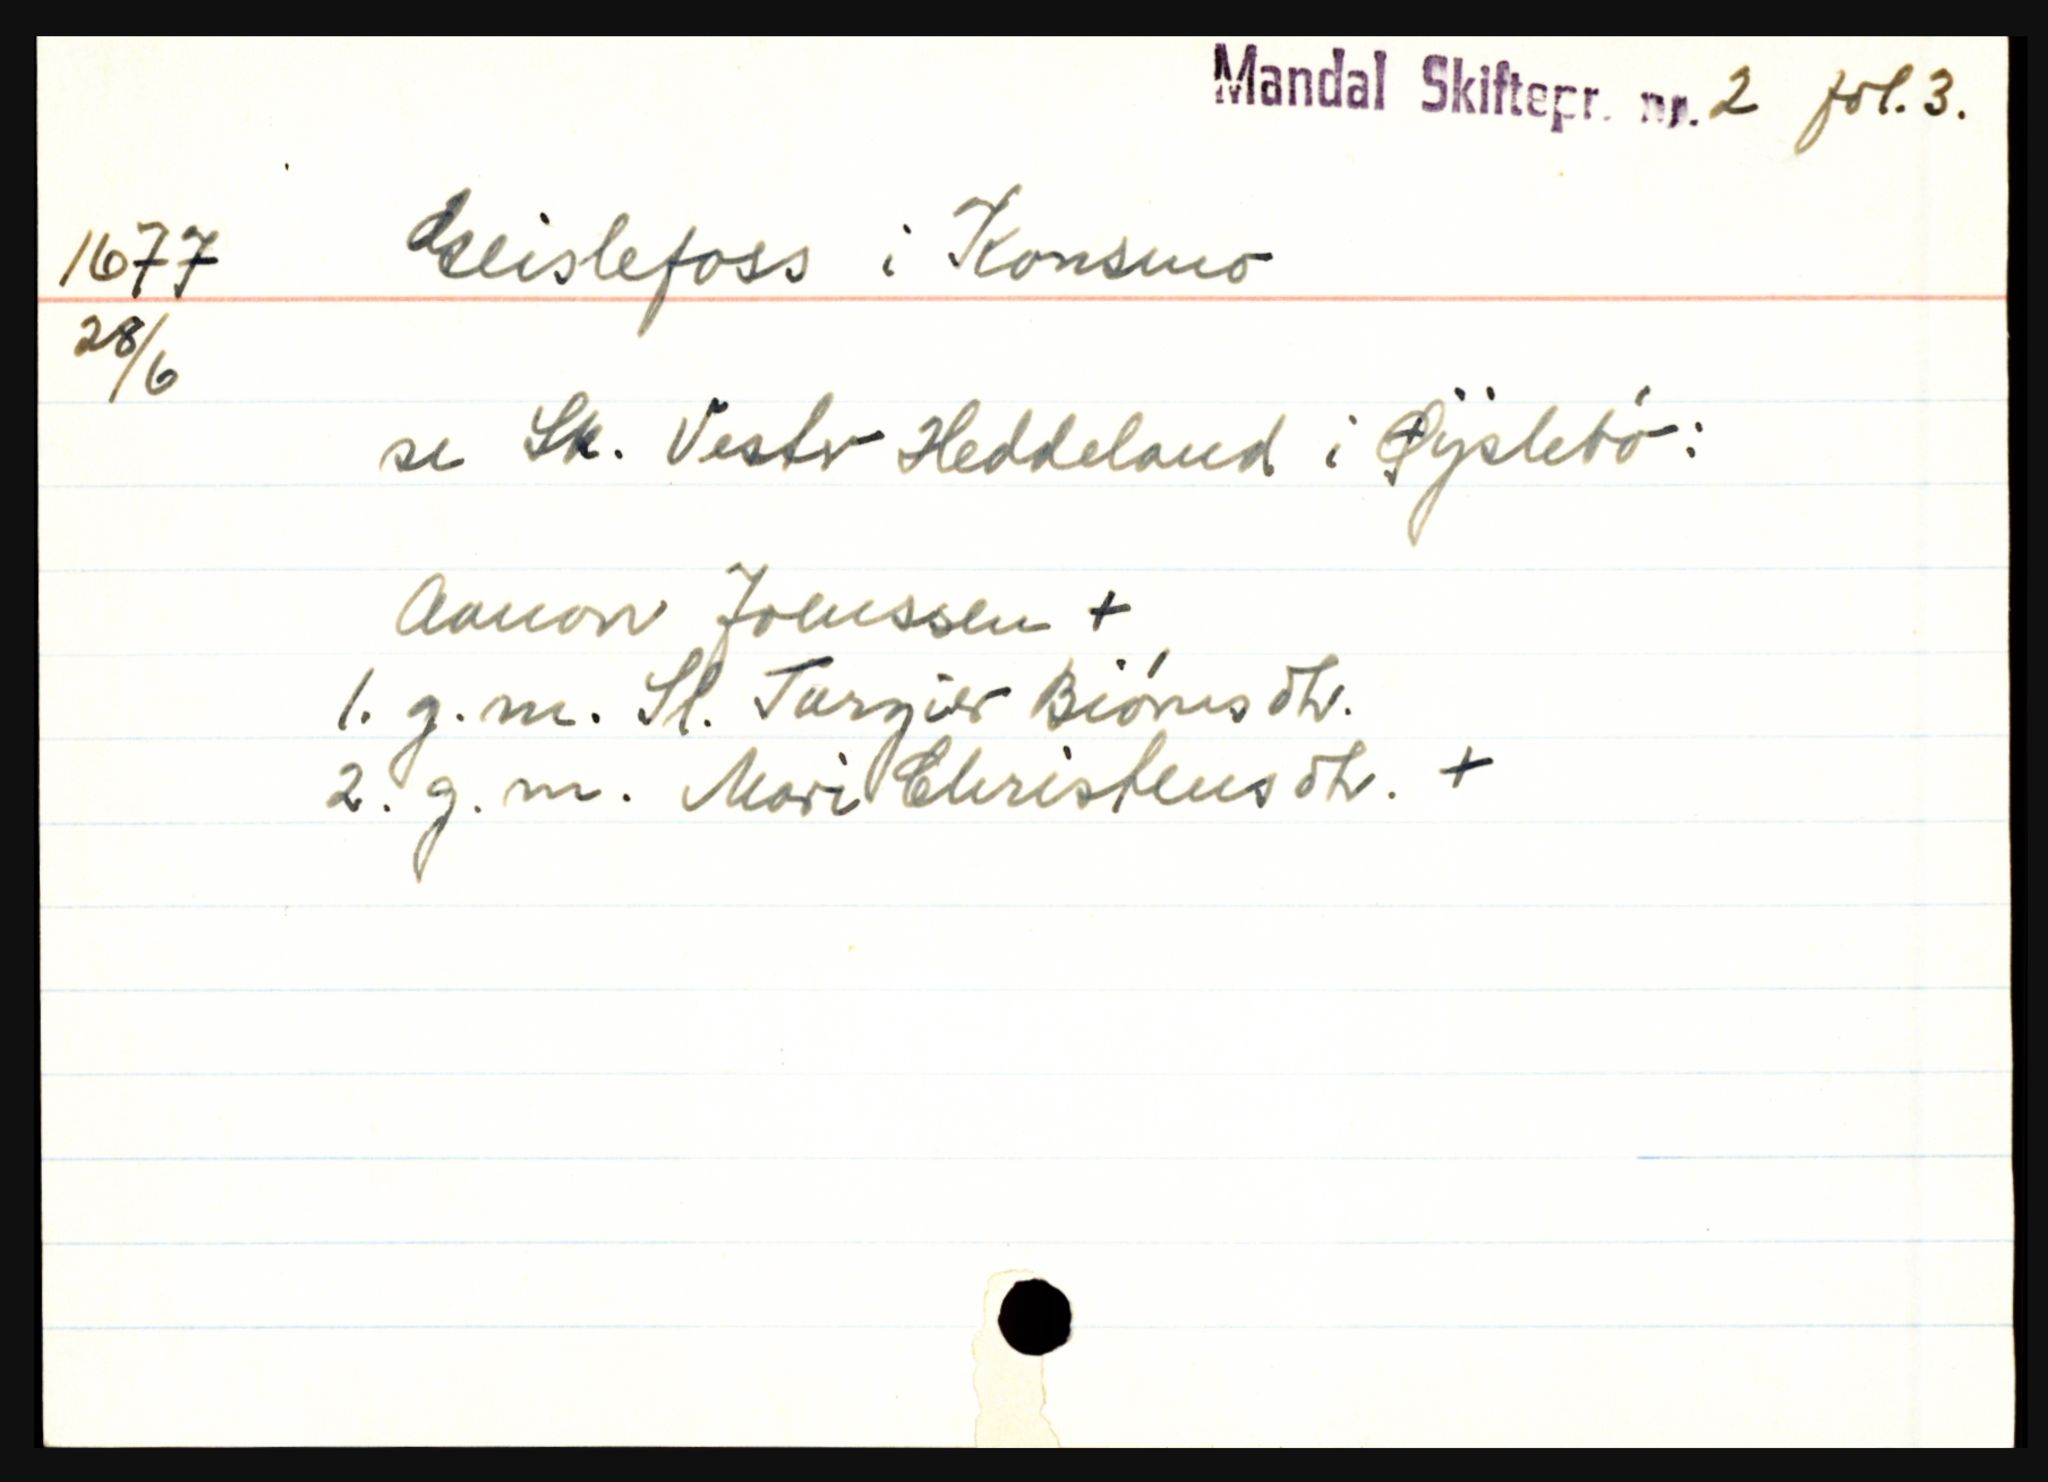 Mandal Skiftepr. nr. 2 fol. 3.
1677 Gleislefoss i Konsmo
28/6
se Sk. Vestr Heddeland i Øÿslebó:
Aanon Joenssen +
1. g. m. Sl. Targier Biórnsdtr.
2. g. m. Mari Christensdtr. +